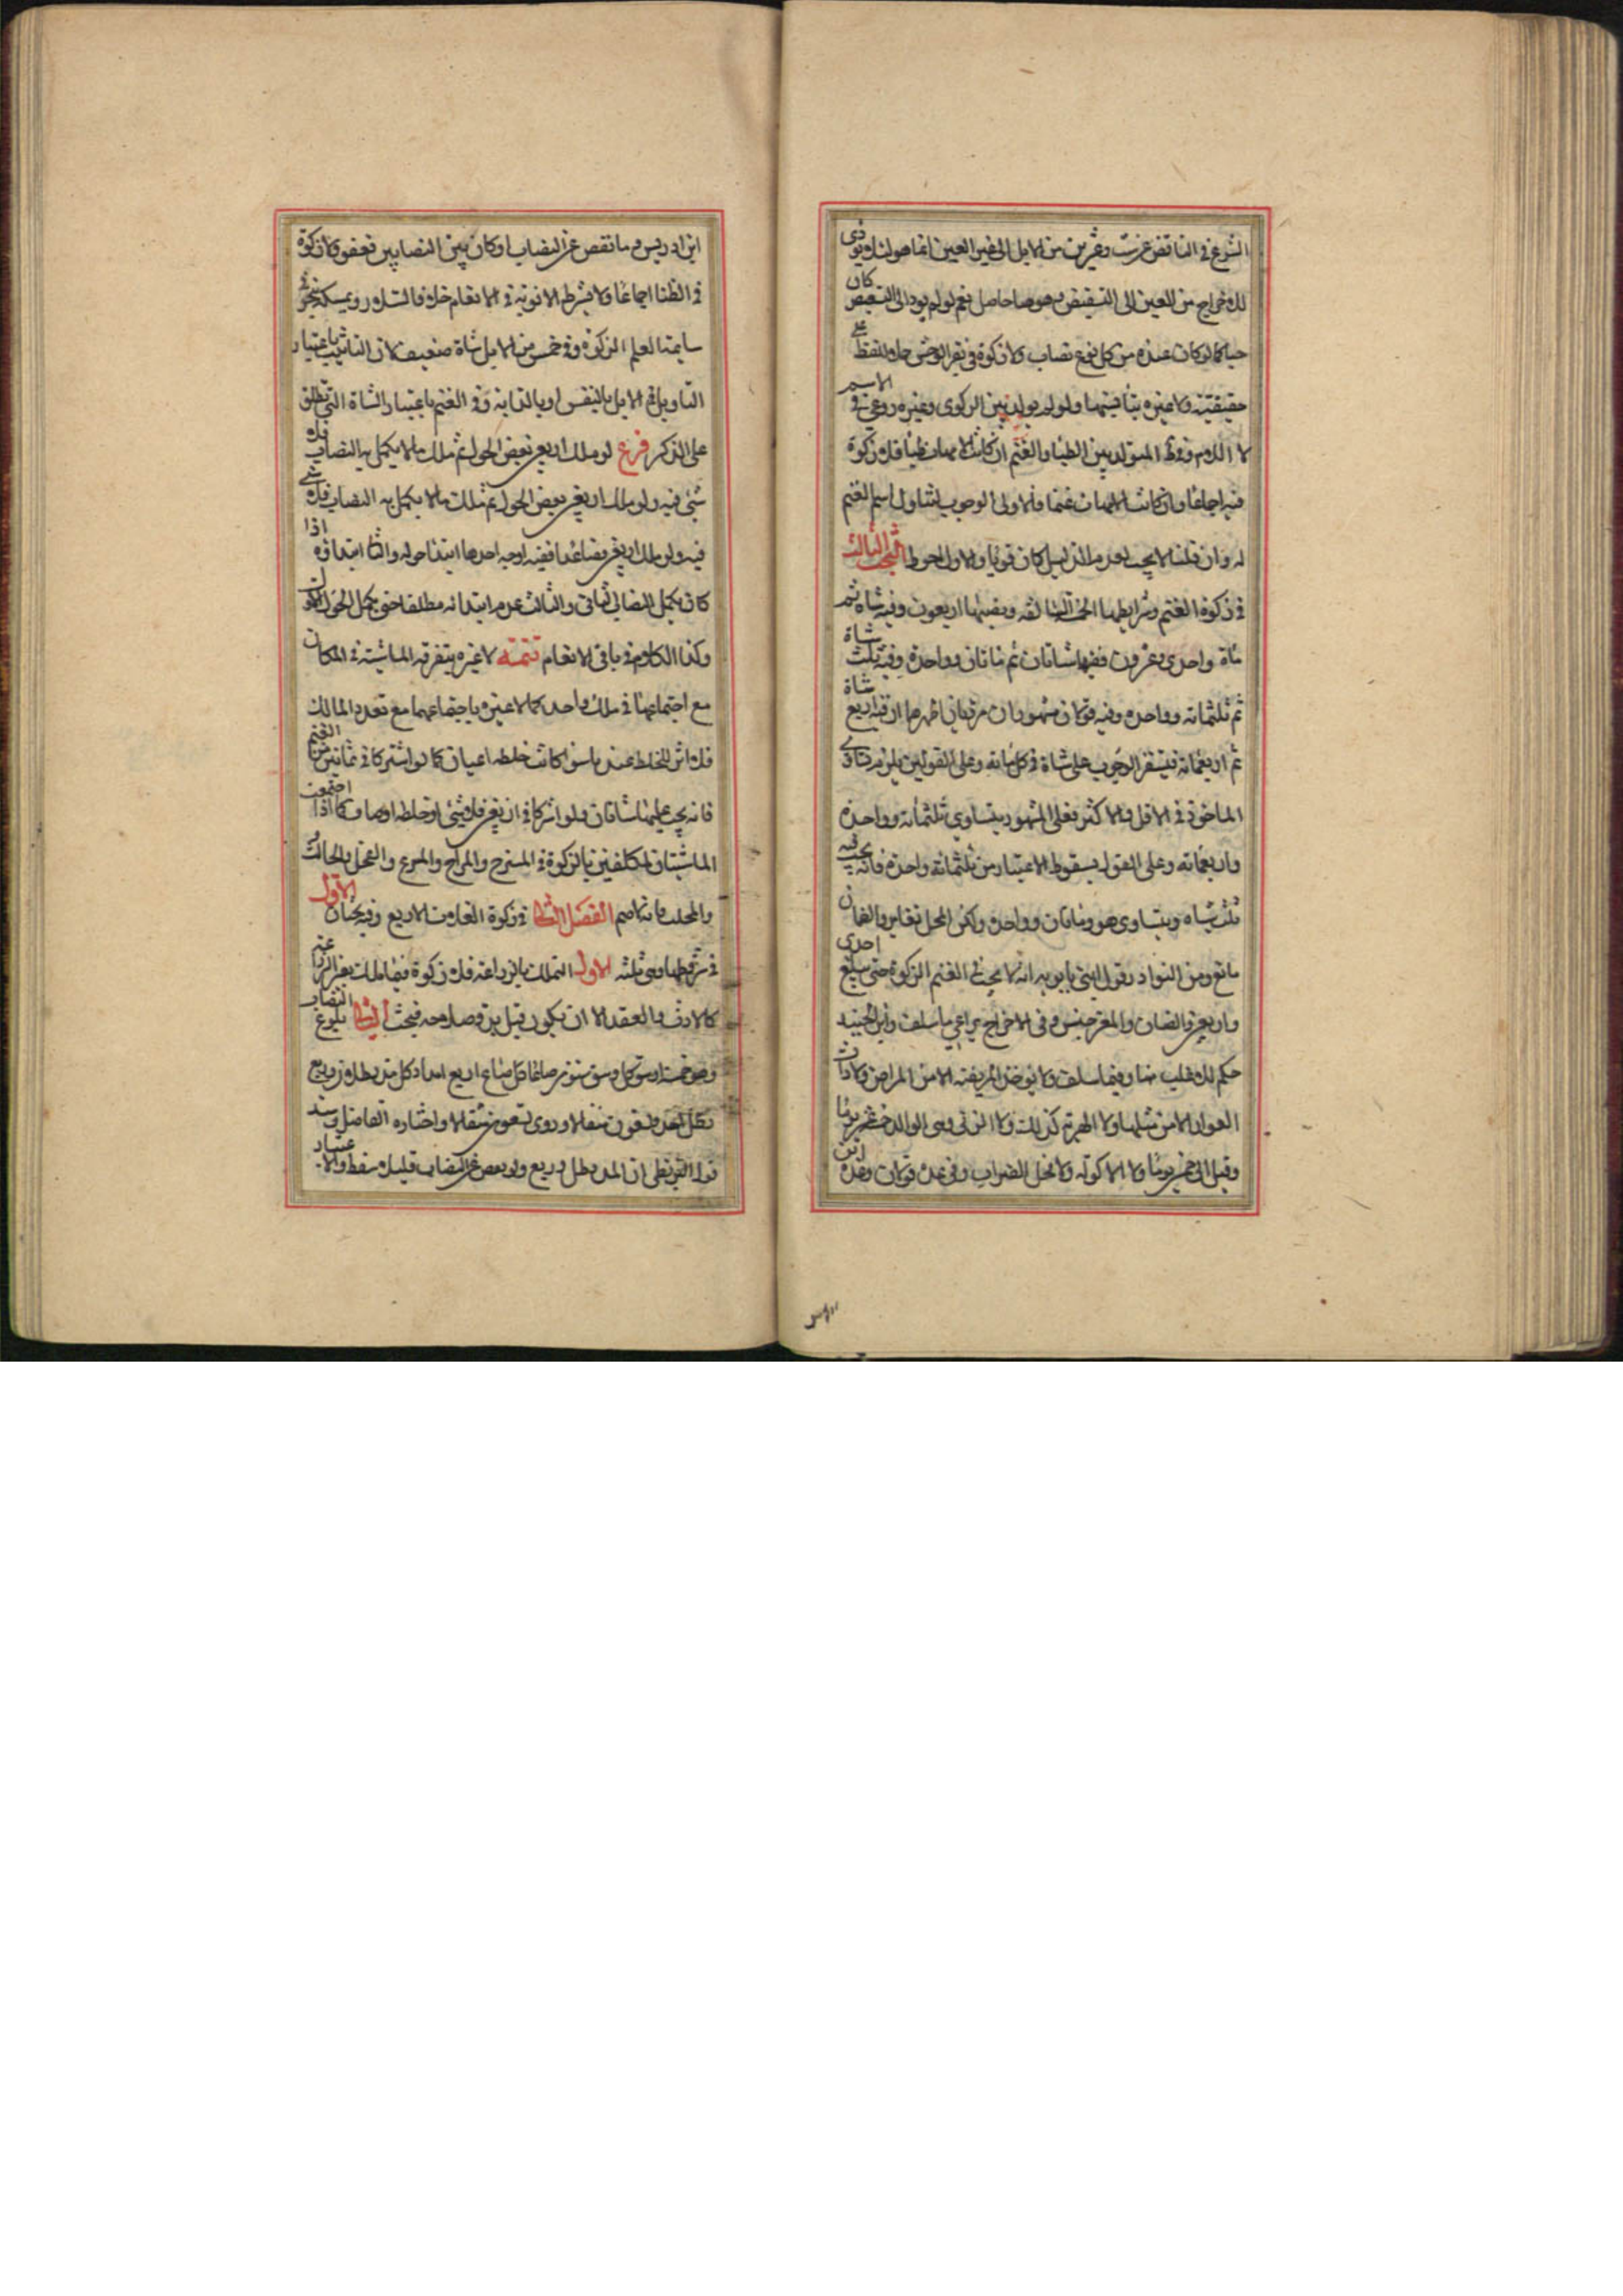 الشرع في الناقص عن ست وعشرين من الابل الى غير العين انما هو لئلا يودى
الاخراج من العين الى التشقيص وهو هنا حاصل نعم لو لم يود الى التشقيص كان
حسنا كما لو كان عنده من كل نوع نصاب ولا زكوة في بقر الوحش حملا للفظ على
حقيقته ولا عبرة ولو تولد بين الزكوى وغيره روعى الاسم
لا الام المتولد بين الظبا والغنم ان كانت الامهات ظبا فلا زكوة
فيه اجماعا وان كانت الامهات غنما فالاولى الوجوب لتناول اسم الغنم
له وان قلنا لا يجب لعدم الدليل كان قويا والاول احوط البحث الثالث
في زكوة الغنم وشرايطها الثلثة السالفة ونصبها اربعون وفيه شاة ثم
مائة واحدى وعشرون ففيها شاتان ثم مائتان وواحدة وفيه ثلث شياه
ثم ثلثمائة وواحدة وفيه قولان مشهوران مرويان اظهرهما ان فيه اربع شياه
ثم اربعمائة فيستقر الوجوب على شاة في كل مائة وعلى القولين يلزم تساوى
الماخوذ في الاقل والاكثر فعلى المشهور يتساوى ثلثمائة وواحدة
واربعمائة وعلى القول بسقوط الاعتبار من ثلثمائة واحدة فانه يجب فيه
ثلث شياه ويتساوى هو ومائتان وواحدة ولكن المحل تغاير والضمان
مانع ومن النوادر قول ابنى بابويه انه لا يجب في الغنم الزكوة حتى يبلغ احدى
واربعين والضان والمعز جنس وفي الاخراج يراعى ما سلف وابن الجنيد
حكم الاغلب هنا وفيما سلف ولا يوخذ المريضة الا من المراض ولا ذات
العوار الا من مثلها ولا الهرمة كذلك ولا الربى وهى الوالد خمسة عشر يوما
وقيل الى خمسين يوما ولا الاكولة ولا فحل الضراب وفي عده قولان وعده ابن
ابن ادريس وما نقص عن النصاب او كان بين النصابين فعفو ولا زكوة
في الظبا اجماعا ولا يشترط الانوثة في الانعام خلافا لسلار ويمسكه بنحو في
سايمة الغنم الزكوة وفي خمس من الابل شاة ضعيف لان التانيث باعتبار
التاويل في الابل بالنفس او بالدابة وفي الغنم باعتبار الشاة التي تطلق
على الذكر فرع لو ملك اربعين بعض الحول ثم ملك ما لا يكمل به النصاب فلا
شئ فيه ولو ملك اربعين بعض الحول ثم ملك ما لا يكمل به النصاب فلا شئ
فيه ولو ملك اربعين فصاعدا ففيه اوجه احدها ابتدا حوله والثاني ابتداؤه اذا
كان يكمل النصاب الثاني والثالث عدم ابتدائه مطلقا حتى يكمل الحول الاول
وكذا الكلام في باقى الانعام تتمة لا عبرة بتفرق الماشية في المكان
مع اجتماعها في ملك واحد كما لا عبرة باجتماعهما مع تعدد المالك
فلا اثر للخلط عندنا سوا كانت خلطة اعيان كما لو اشتركا في ثمانين من الغنم
فانه يجب عليهما شاتان ولو اشتركا في اربعين فلا شئ او خلطة اوصاف كما اذا اجتمعت
الماشيتان لمكلفين بالزكوة في المسرح والمراح والمرعى والفحل والحالب
والمحلب وما شابههم الفصل الثاني في زكوة الغلات الاربع وفيه بحثان الاول
في شروطها وهي ثلثة الاول التملك بالزراعة فلا زكوة فيما ملك بغير الزراعة
كالارث والعقد الا ان يكون قبل بدو صلاحه فيجب الثاني بلوغ النصاب
وهو خمسة اوسق كل وسق ستون صاعا كل صاع اربع امداد كل مد رطلان وربع
رطل احد وتسعون مثقالا وروى تسعون مثقالا واختاره الفاضل وسند
قول البزنطي ان المد رطل وربع ولو نقص عن النصاب قليلا سقط والاعتبار